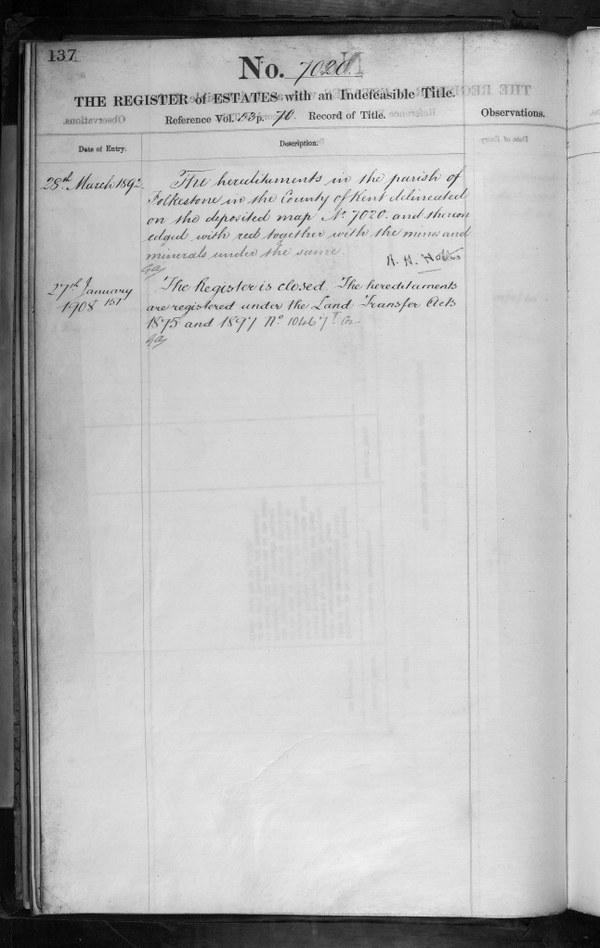 137
No. 7020.
THE REGISTER of ESTATES with an Indefeasible Title.
Reference Vol. 53 p. 70. Record of Title.
Observations.
Date of Entry.
Description.
28th March 1892.
The hereditaments in the parish of
Folkestone in the County of Kent delineated
on the deposited map No. 7020. and thereon
edged with red together with the mines and
minerals under the same.
27th January
1908
The Register is closed. The hereditaments
are registered under the Land Transfer Acts
1875 and 1897 No